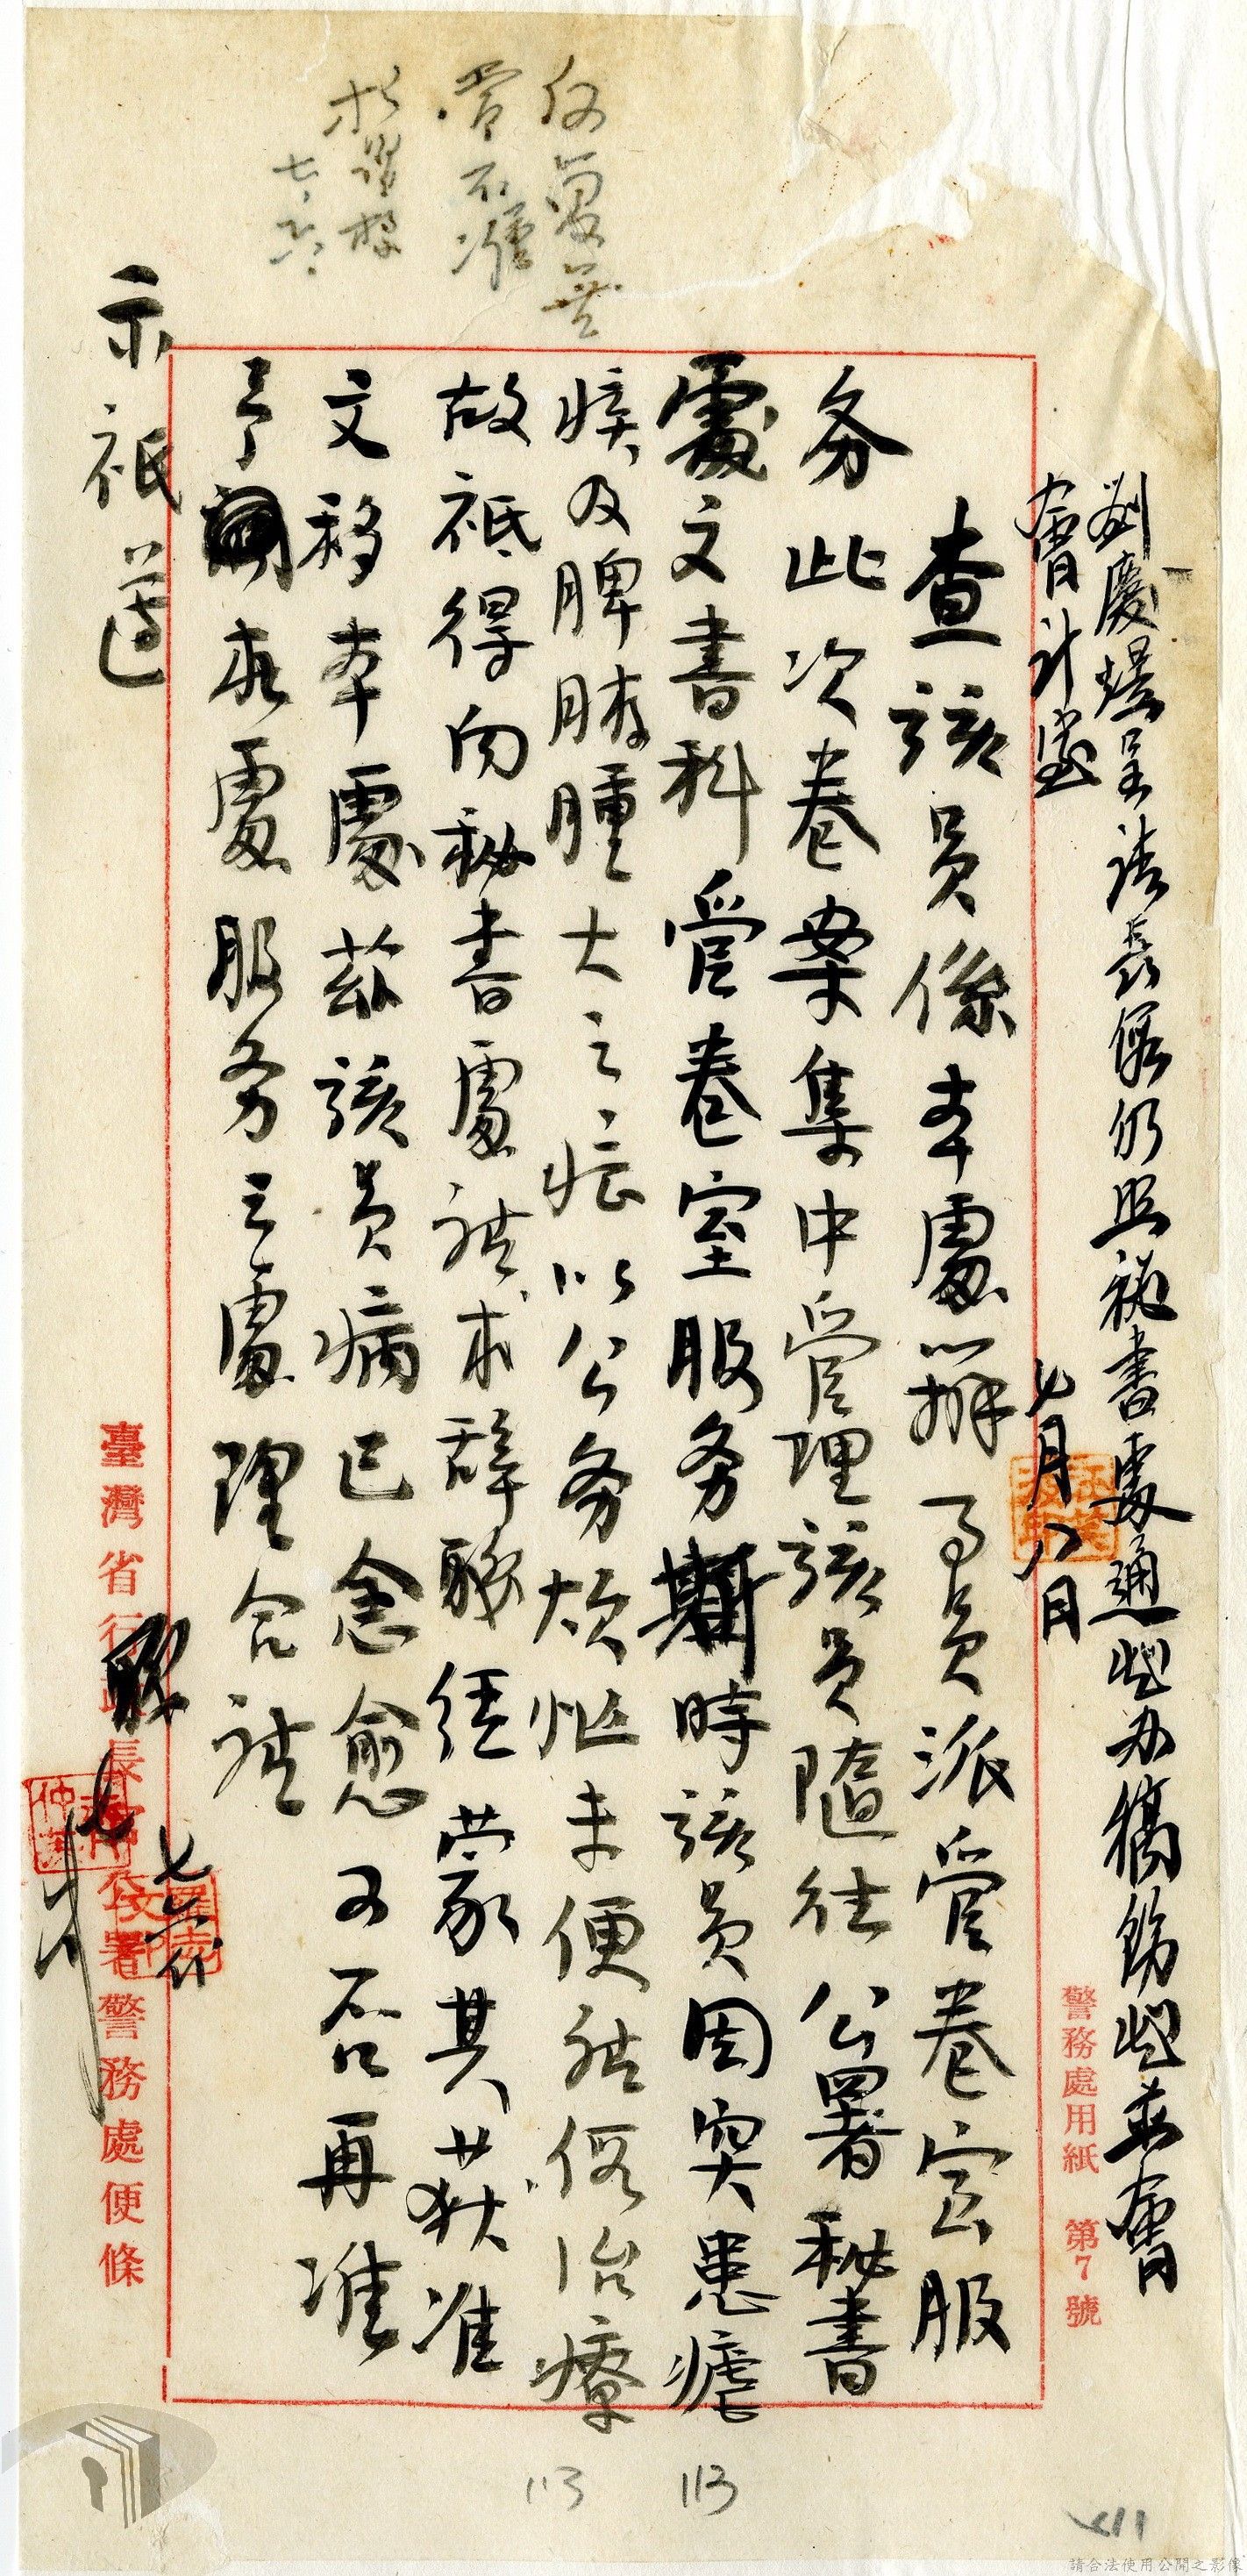 劉慶堤呈請長假仍照秘書處通照办稿飭照並會
會計室
七月八日
警務處用紙 第7號
查該員係本處辦事員派管卷室服
务此次卷案集中管理該員隨往公署秘書
處文書科管卷室服务時該員因突患瘧
疾及脾臟腫大之症以公务煩忙未便請假治療
故祗得向秘書處請求辭職經蒙其獲准
文移本處茲該員病已愈可否再准
予來處服务之處理合請
示祗遵
職
七、六
臺灣省行政長官公署警務處便條
不准
七、六
113
113
請合法使用公開之影像